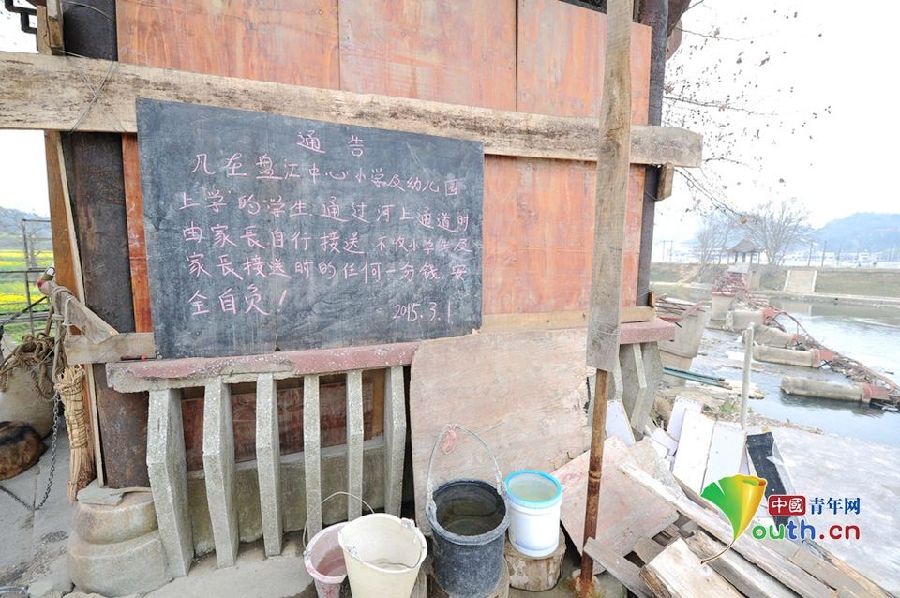 通告
凡在盘江中心小学及幼儿园
上学的学生、通过河上通道时
由家长自行接送、不收小学生及
家长接送时的任何一分钱、安
全自负！
2015.3.1
中國青年网
youth.cn